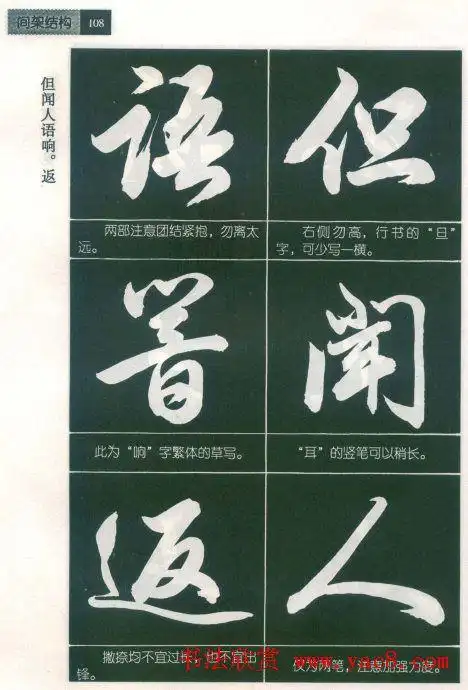 间架结构 108
但闻人语响。返
但
右侧勿高，行书的“旦”
字，可少写一横。
闻
“耳”的竖笔可以稍长。
人
仅为两笔，注意加强力度。
语
两部注意团结紧抱，勿离太
远。
响
此为“响”字繁体的草写。
返
撇捺均不宜过长，也不宜出
锋。
书法欣赏 www.yac8.com